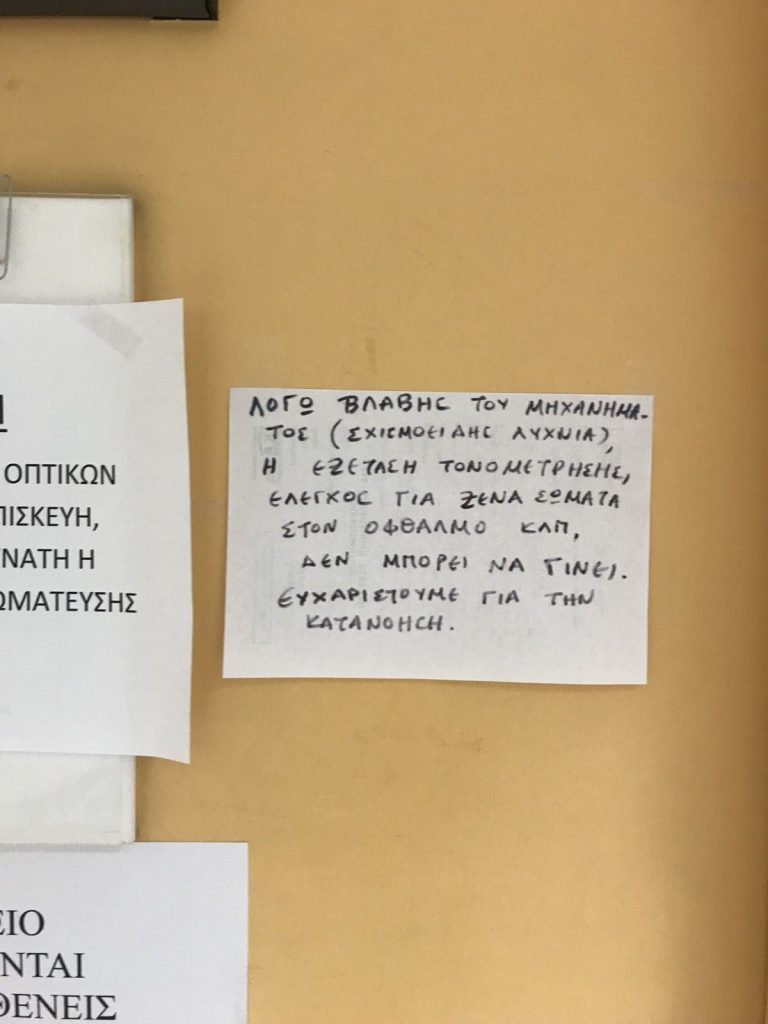 Η
ΟΠΤΙΚΩΝ
ΠΙΣΚΕΥΗ,
ΝΑΤΗ Η
ΩΜΑΤΕΥΣΗΣ
ΛΟΓΩ ΒΛΑΒΗΣ ΤΟΥ ΜΗΧΑΝΗΜΑ-
ΤΟΣ (ΣΧΙΣΜΟΕΙΔΗΣ ΛΥΧΝΙΑ),
Η ΕΞΕΤΑΣΗ ΤΟΝΟΜΕΤΡΗΣΗΣ,
ΕΛΕΓΧΟΣ ΓΙΑ ΞΕΝΑ ΣΩΜΑΤΑ
ΣΤΟΝ ΟΦΘΑΛΜΟ ΚΛΠ,
ΔΕΝ ΜΠΟΡΕΙ ΝΑ ΓΙΝΕΙ.
ΕΥΧΑΡΙΣΤΟΥΜΕ ΓΙΑ ΤΗΝ
ΚΑΤΑΝΟΗΣΗ.
ΕΙΟ
ΝΤΑΙ
ΘΕΝΕΙΣ